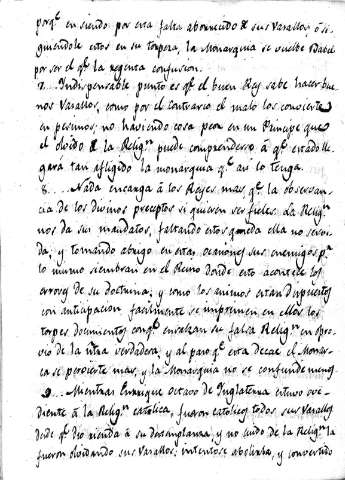 porq.e en siendo por esta falta aborrecido de sus Vasallos ó si
guiendole estos en su torpeza, la Monarquia se vuelve Babel
por ser el q.e la regenta confusion.
7... Indispensable punto es q.e el buen Rey sabe hacer bue
nos Vasallos, como por el contrario el malo los convierte
en pesimos; no haviendo cosa peor en un Principe que
el olvido de la Relig.n puede comprenderse à q.e estado lle
gará tan afligido la monarquia q.e asi lo tenga.
8... Nada encarga à los Reyes mas q.e la observan
cia de los divinos preceptos si quieren ser fieles. La Relig.n
nos da sus mandatos, faltando estos queda ella no servi
da; y tomando abrigo en estas ocasiones sus enemigos p.r
lo mismo siembran en el Reino donde esto acontece los
errores de su doctrina; y como los animos estan dispuestos
con anticipacion facilmente se imprimen en ellos los
torpes documentos con q.e ensalzan su falsa Relig.n en opro
vio de la ntra verdadera, y al paso q.e esta decae el Monar
ca se pervierte mas, y la Monarquia no se confunde menos.
9... Mientras Enrrique octavo de Inglaterra estuvo ove
diente à la Relig.n catolica, fueron catolicos todos sus Vasallos
desde q.e dio rienda à su destemplanza, y no cuido de la Relig.n la
fueron olvidando sus Vasallos; intentose abolirla, y convertido